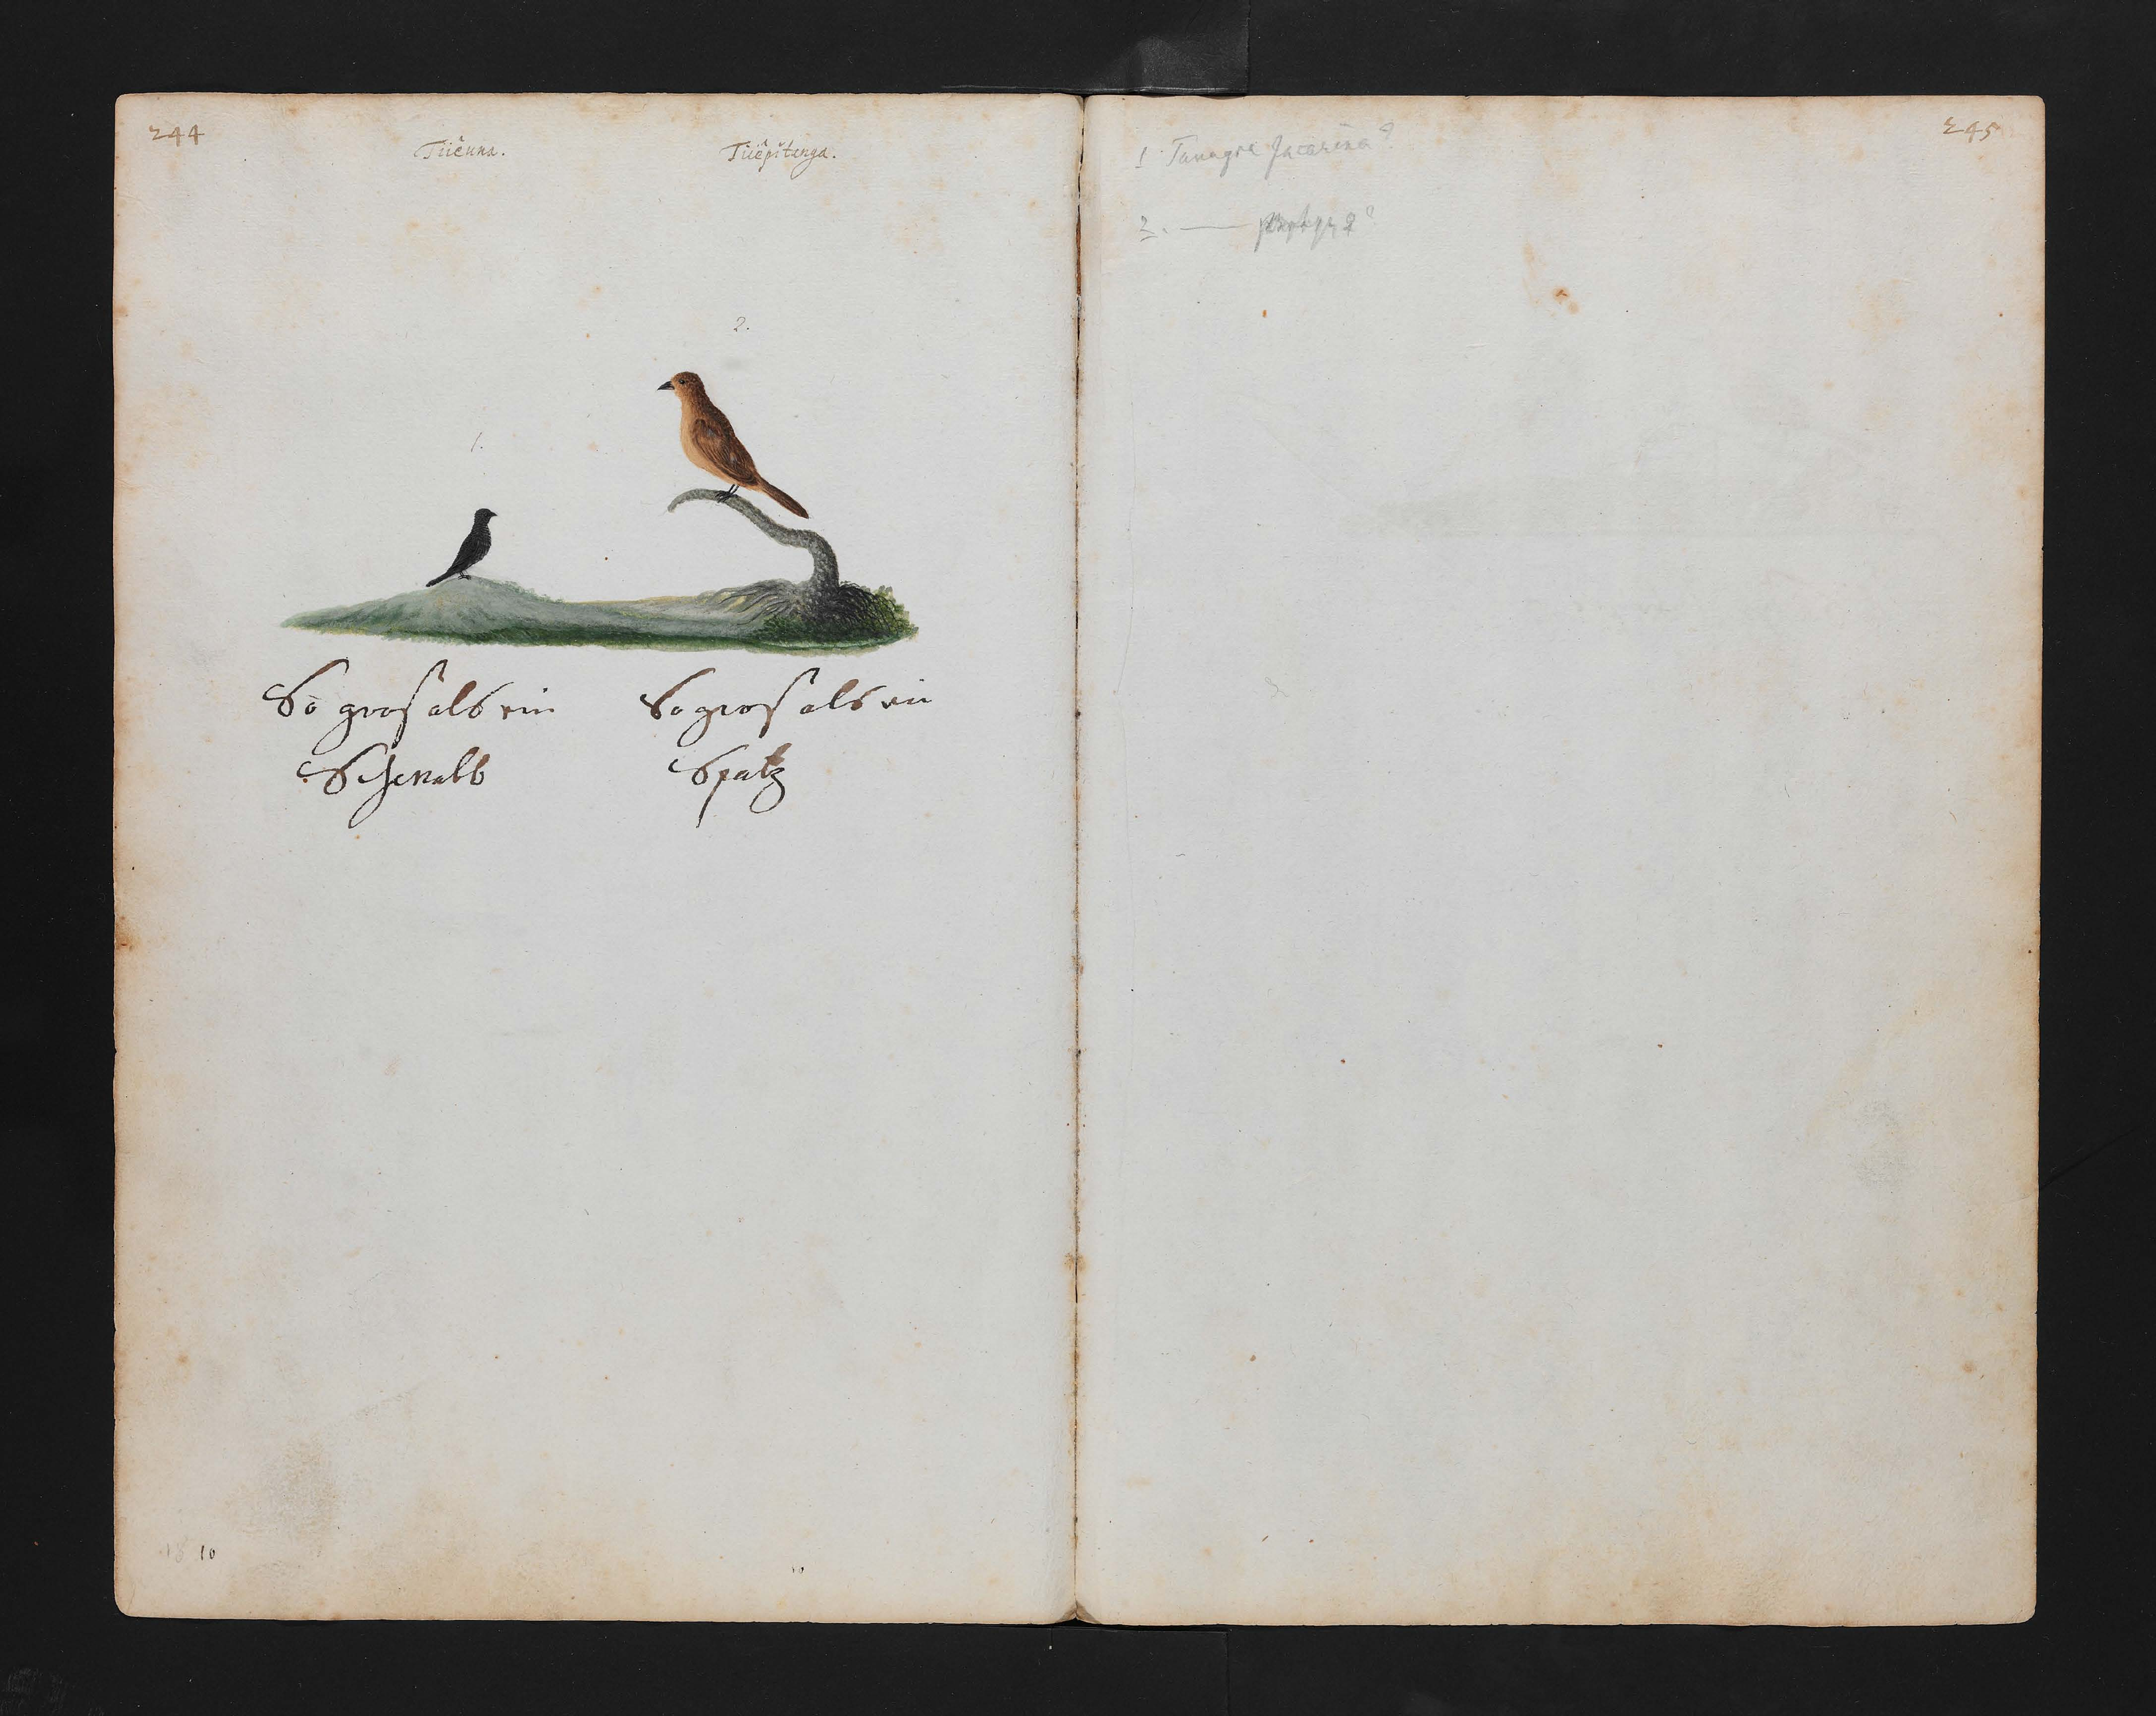 244
Tiiê una.
Tiiêpitanga.
1.
2.
So gros als ein
Schwalb
So gros als ein
Spatz
18 10
245
1 Tanagra Jacarina?
2. —